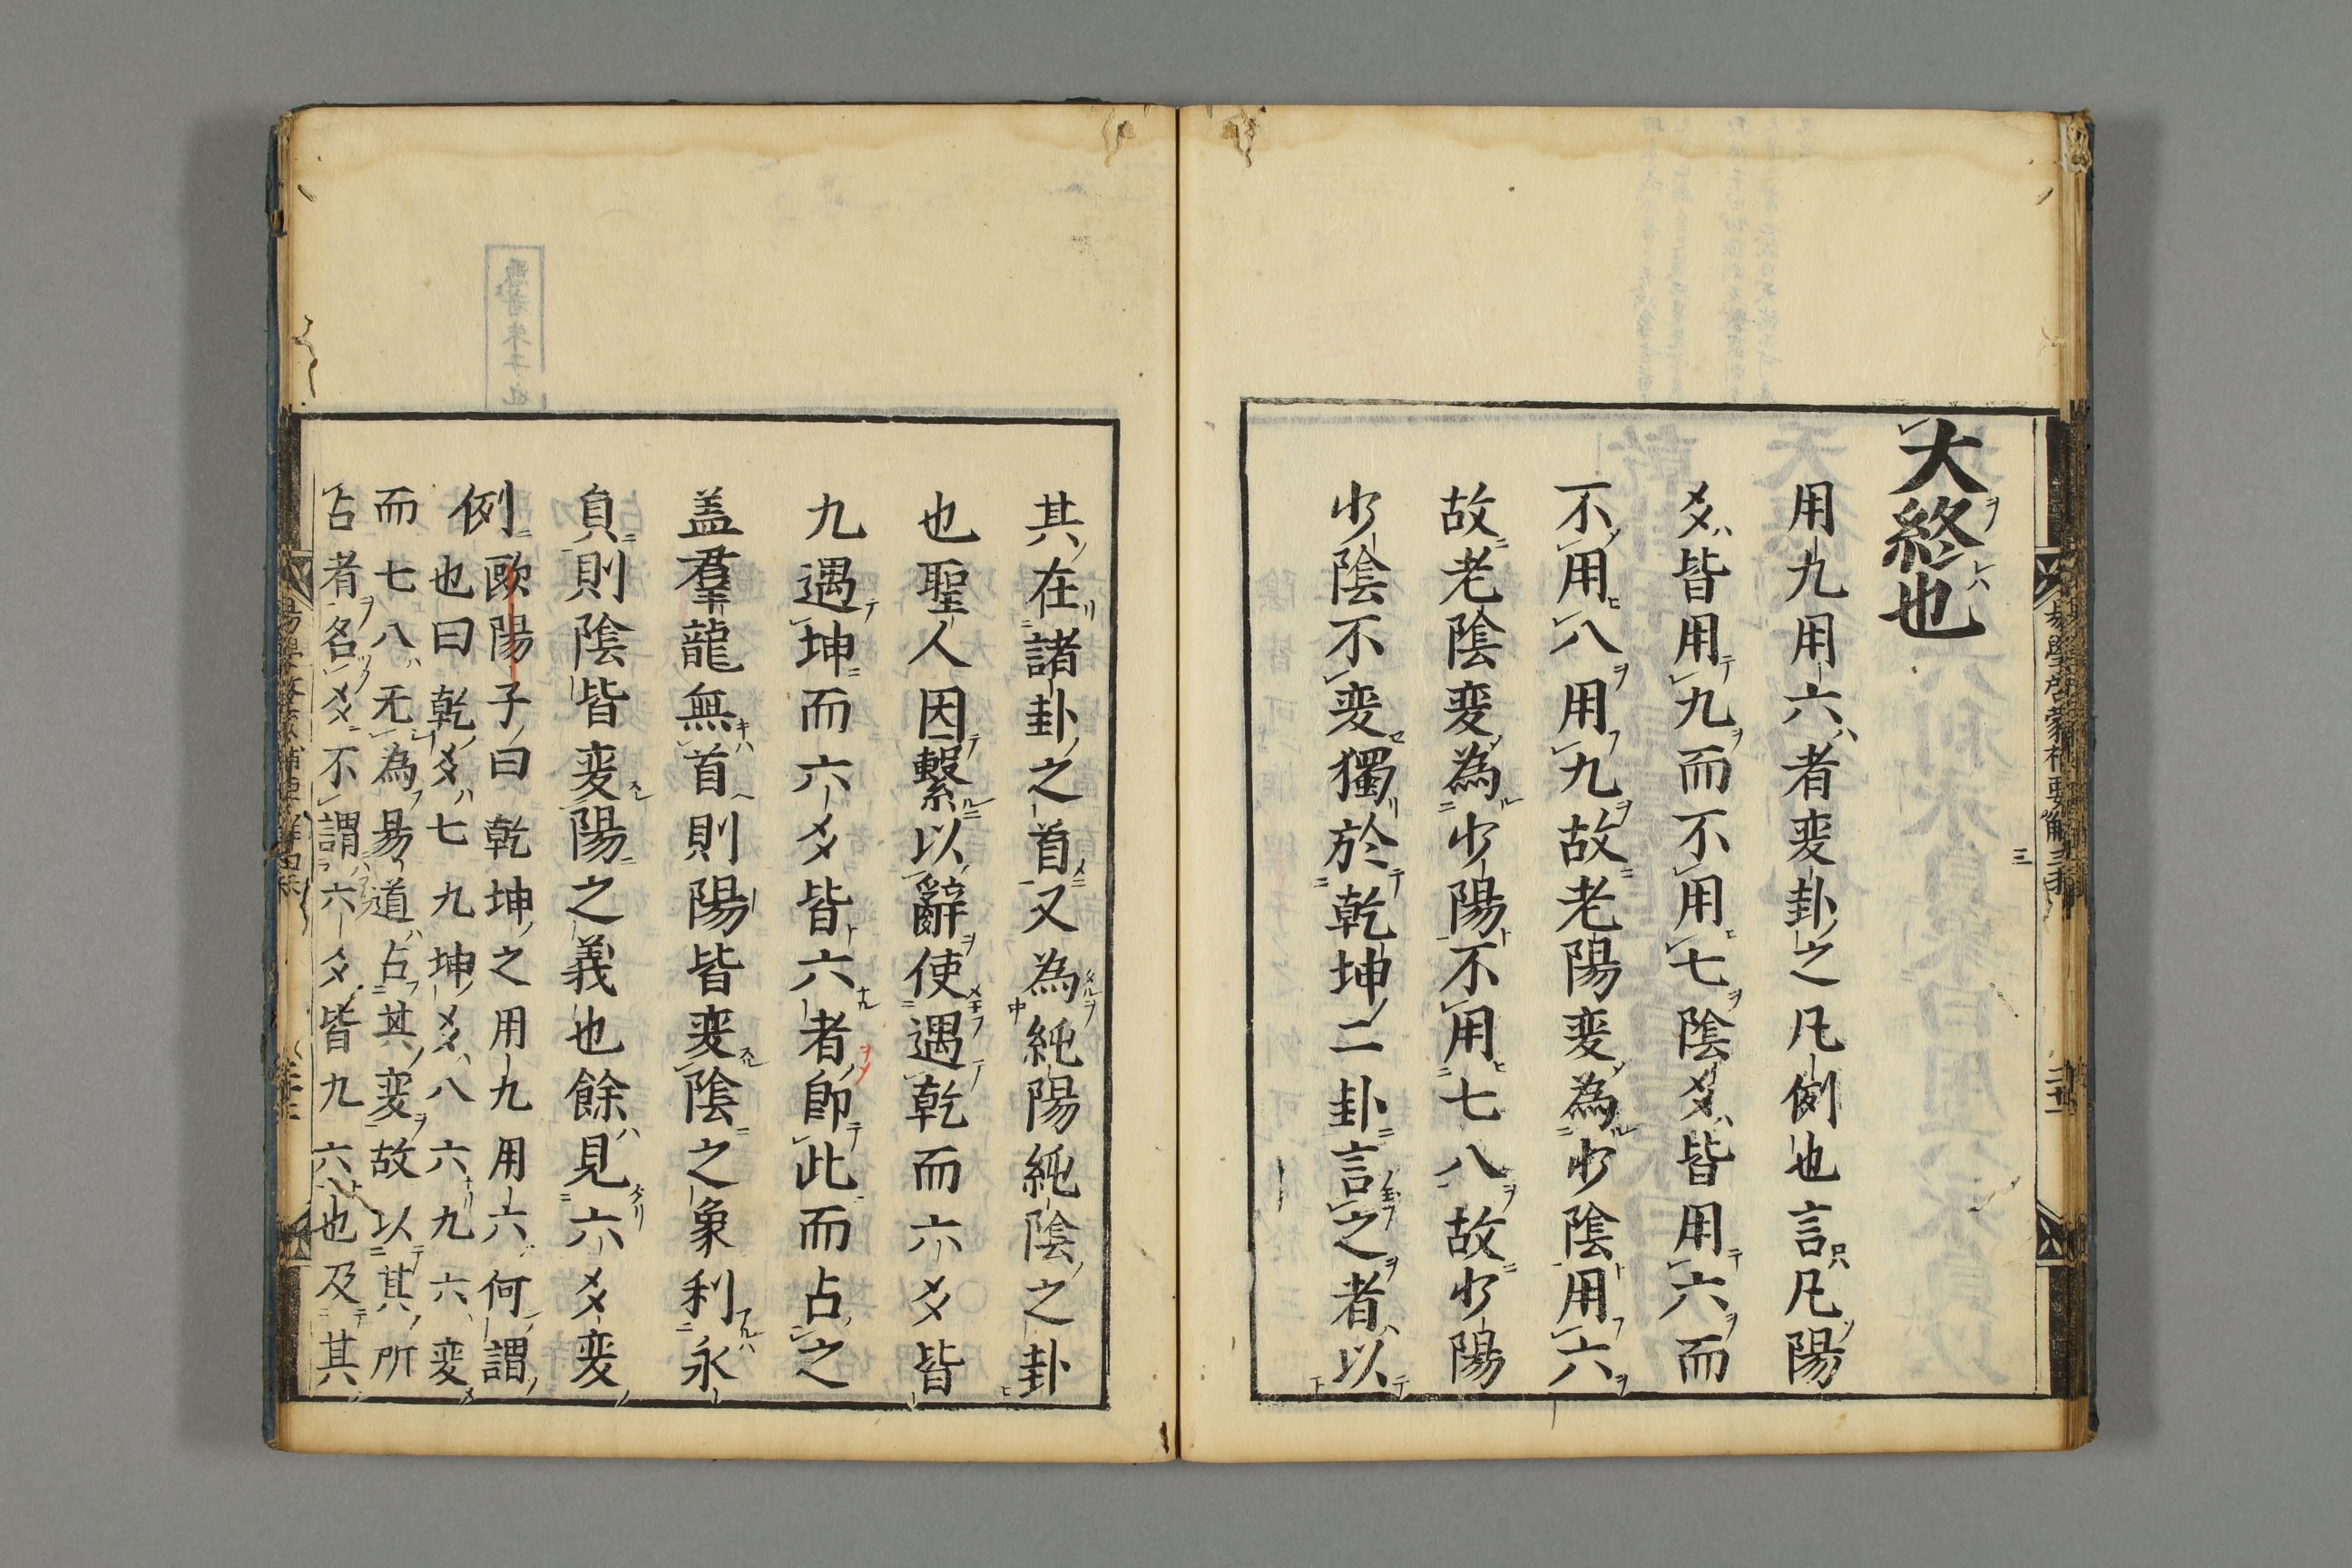 大終也
用九用六者変卦之凡例也言凡陽
爻皆用九而不用七陰爻皆用六而
不用八用九故老陽変為少陰用六
故老陰変為少陽不用七八故少陽
少陰不変獨於乾坤二卦言之者以
其在諸卦之首又為純陽純陰之卦
也聖人因繫以辭使遇乾而六爻皆
九遇坤而六爻皆六者即此而占之
盖羣龍無首則陽皆変陰之象利永
貞則陰皆変陽之義也餘見六爻変
例歐陽子曰乾坤之用九用六何謂
也曰乾爻七九坤爻八六九六変
而七八无為易道占其変故以其所
占者名爻不謂六爻皆九六也及其